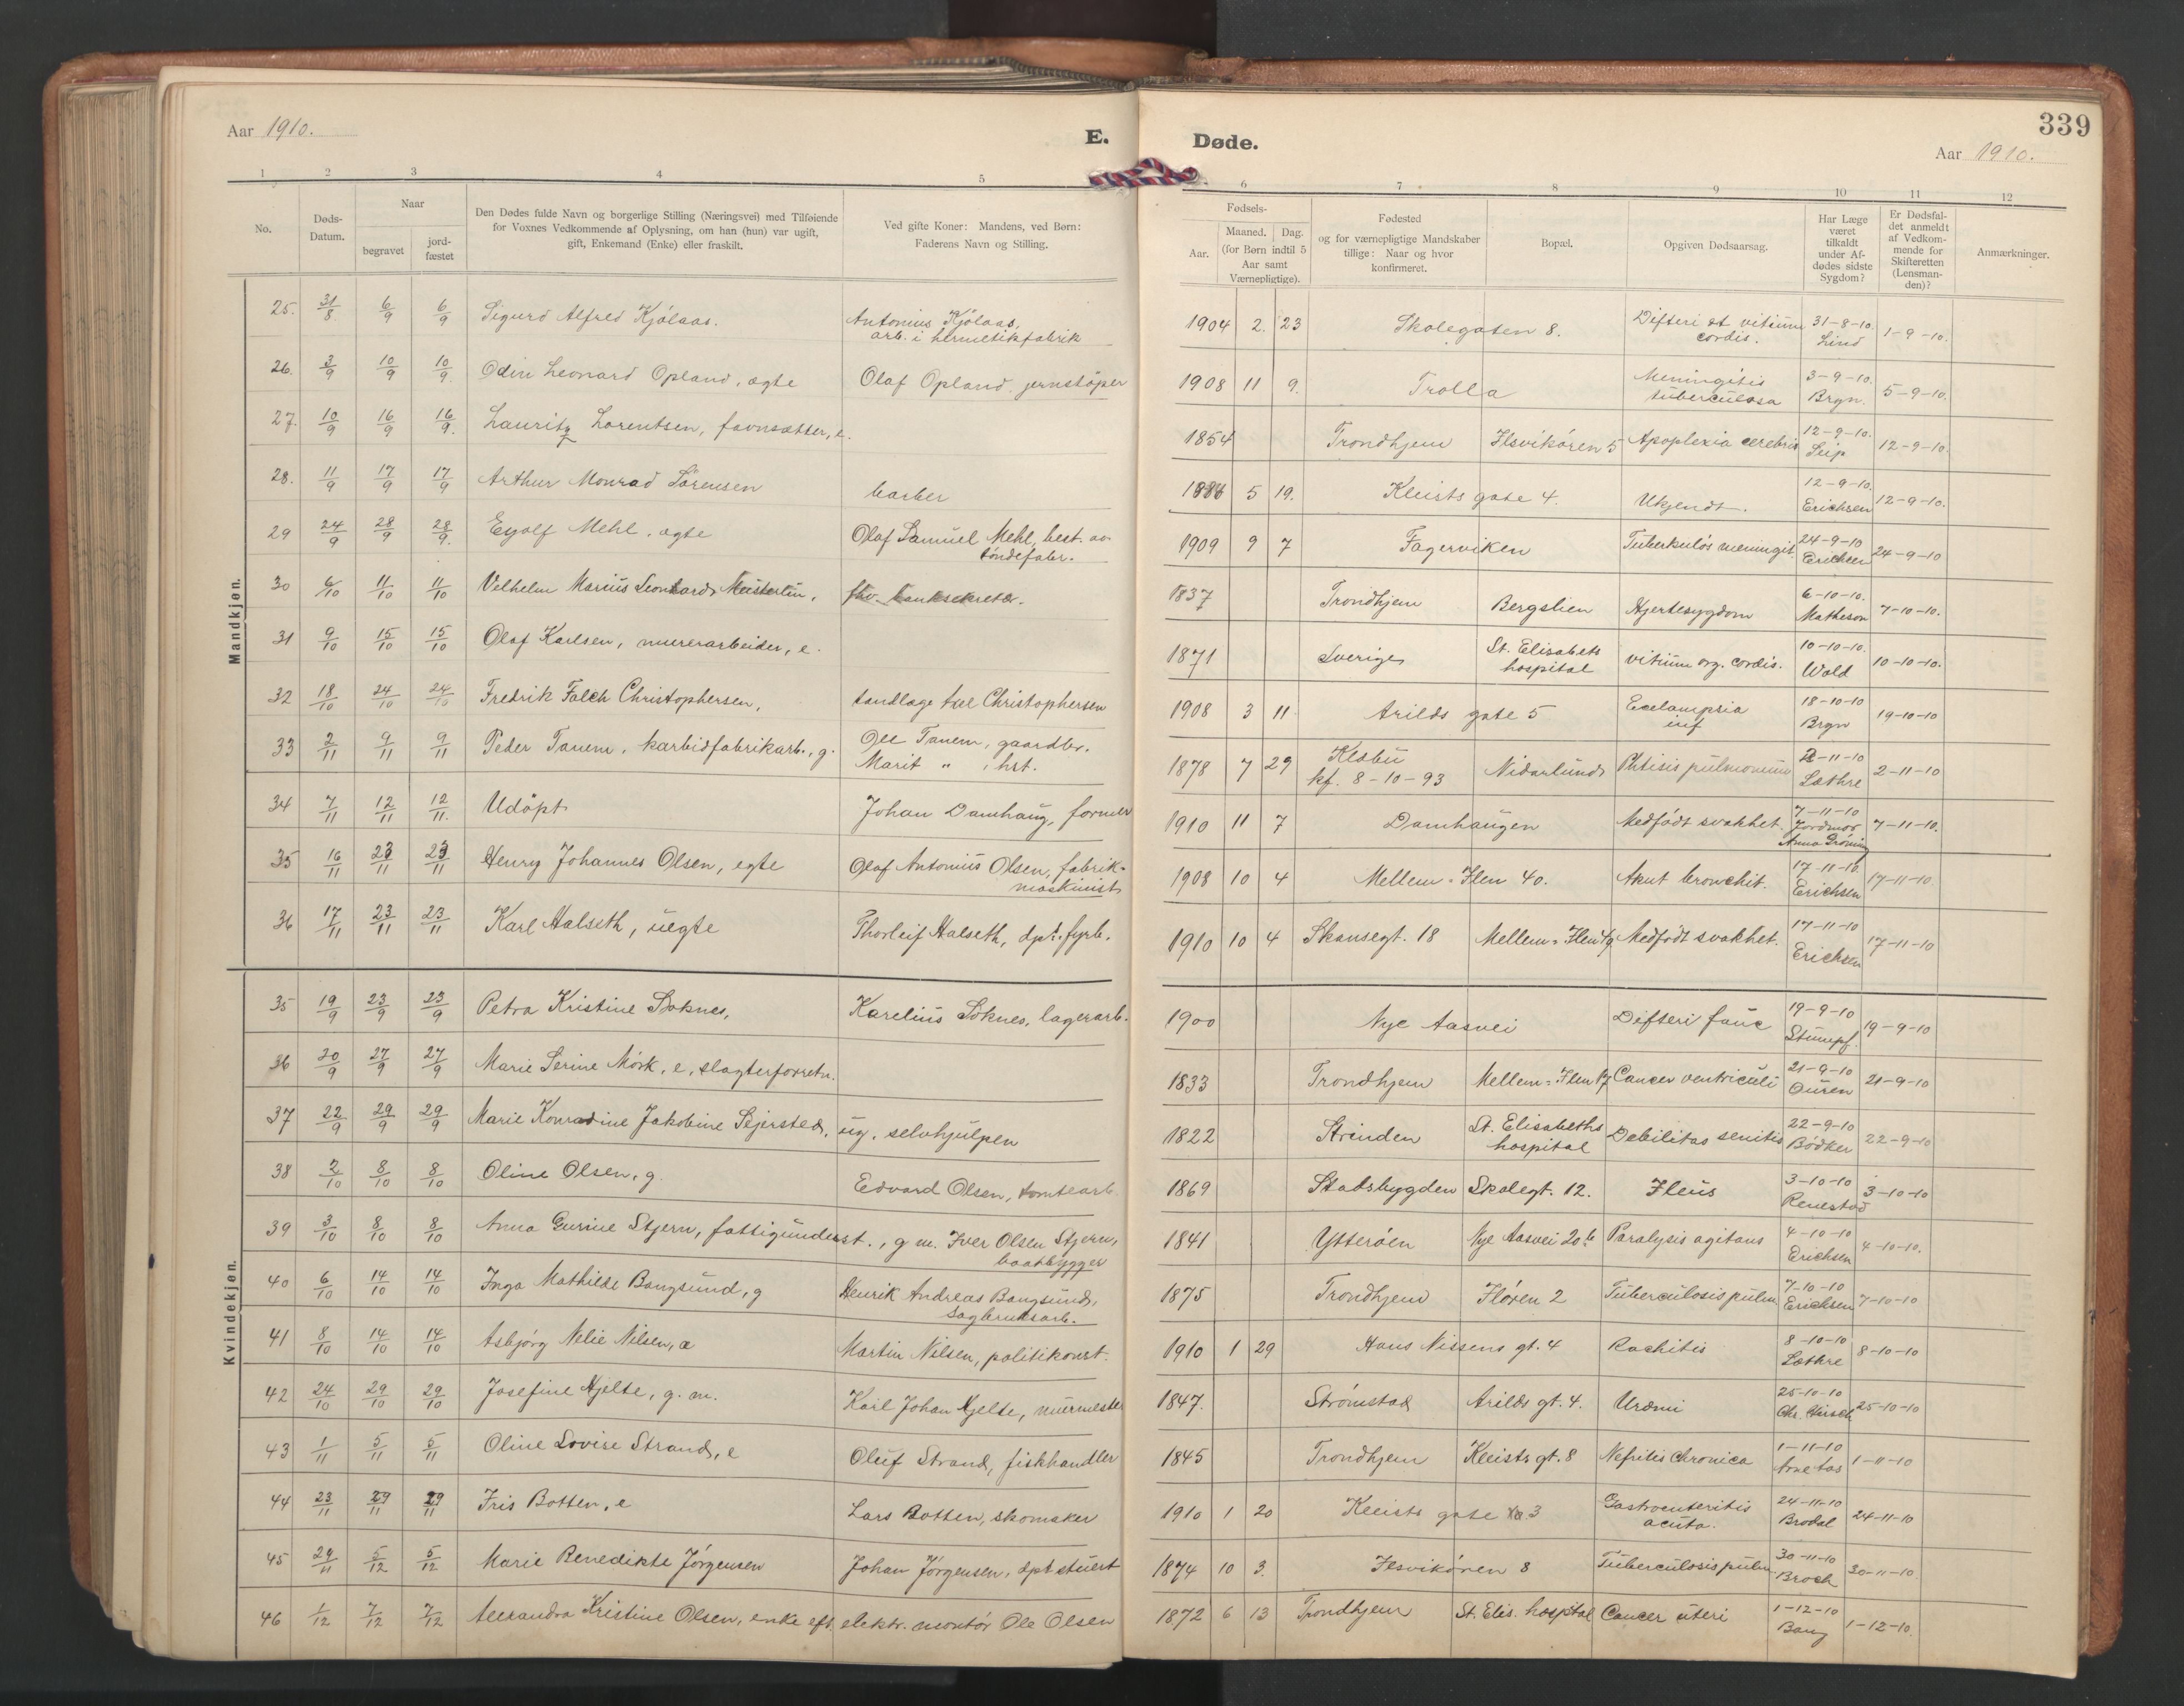 Aar 1910.
E.
Døde.
339
Aar 1910.
1 2 3 4 5 6 7 8 9 10 11 12
No.
Døds-Datum.
Naar
begravet
jord-fæstet
Den Dødes fulde Navn og borgerlige Stilling (Næringsvei) med Tilføiende
for Voxnes Vedkommende af Oplysning, om han (hun) var ugift,
gift, Enkemand (Enke) eller fraskilt.
Ved gifte Koner: Mandens, ved Børn:
Faderens Navn og Stilling.
Fødsels-
Aar.
Maaned. Dag.
(for Børn indtil 5
Aar samt
Værnepligtige).
Fødested
og for værnepligtige Mandskaber
tillige: Naar og hvor
konfirmeret.
Bopæl.
Opgiven Dødsaarsag.
Har Læge
været
tilkaldt
under Af-
dødes sidste
Sygdom?
Er Dødsfal-
det anmeldt
af Vedkom-
mende for
Skifteretten
(Lensman-
den)?
Anmærkninger.
Mandkjøn.
25. 31/8 6/9 6/9 Sigurd Alfred Kjölaas. Antonius Kjölaas, arb. i hermetikfabrik 1904 2. 23 Skolegaten 8. Difteri et vitium cordis. 31-8-10. Lind 1-9-10.
26. 3/9 10/9 10/9 Odin Leonard Opland, ægte Olaf Opland. jernstøper 1908 11 9. Trolla Meningitis tuberculosa 3-9-10. Brgn. 5-9-10.
27. 10/9 16/9 16/9. Lauritz Lorentsen, favnsætter, e. 1854 Trondhjem Ilsvikören 5 Apoplexia cerebris 12-9-10. Leip 12-9-10.
28. 11/9 17/9 17/9 Arthur Monrad Sörensen barber 5 19. Kleists gate 4. Ukjendt. 12-9-10. Erichsen 12-9-10.
29 24/9 28/9 28/9. Eyolf Mehl, ægte Olaf Samuel Mehl, best. av töndefabr. 1909 9 7 Fagerviken Tuberkulös meningit. 24-9-10 Erichsen 24-9-10
30 6/10 11/10 11/10 Vilhelm Marius Leonhard Meisterlin, fhv. banksekretær. 1837 Trondhjem Bergslien Hjertesygdom 6-10-10. Matheson 7-10-10.
31 9/10 15/10 15/10 Olaf Karlsen, murerarbeider, e. 1871 Sverige St. Elisabets hospital vitium org. cordis. 10-10-10. Wold 10-10-10.
32 18/10 24/10 24/10 Fredrik Falch Christophersen, tandlæge Axel Christophersen 1908 3 11 Arilds gate 5 Eclampsia inf 18-10-10 Brgn 19-10-10
33 2/11 9/11 9/11 Peder Tanem, karbidfabrikarb., g. Ole Tanem, gaardbr. Marit " , hst. 1878 7 29 Klæbu kf. 8-10-93 Nidarlund Phtisis pulmonum 2-11-10 Læthre 2-11-10
34 7/11 12/11 12/11. Udöpt Johan Damhaug, former 1910 11 7 Damhaugen Medfödt svakhet. 7-11-10 Jordmor Anna Gröning 7-11-10.
35 16/11 23/11 23/11 Henry Johannes Olsen, egte Olaf Antonius Olsen, fabrik-maskinist 1908 10 4 Mellem-Ilen 40. Akut bronchit. 17-11-10 Erichsen 17-11-10
36 17/11 23/11 23/11 Karl Halseth, uegte Thorleif Halseth, dpt. fyrb. 1910 10 4 Skansegt. 18 Mellem-Ilen Medfödt svakhet. 17-11-10 Erichsen 17-11-10
Kvindekjøn.
35 19/9 23/9 23/9 Petra Kristine Soknes, Karelius Soknes, lagerarb. 1900 Nye Aasvei Difteri fauc 19-9-10 Stumpf. 19-9-10
36 20/9 27/9 27/9 Marie Serine Mörk, e, slagterforretn. 1833 Trondhjem Mellem-Ilen 17 Cancer ventriculi 21-9-10 Ouren 21-9-10
37 22/9 29/9 29/9 Marie Konradine Jakobine Sejersted, ug, selvhjulpen 1822 Strinden St. Elisabeths hospital Debilitas senilis 22-9-10 Bödker 22-9-10
38 2/10 8/10 8/10 Oline Olsen, g Edvard Olsen, tomtearb. 1869 Stadsbygden Skolegt. 12. Ileus 3-10-10 Renestad 3-10-10
39 3/10 8/10 8/10 Anna Gurine Stjern, fattigunderst., g m. Iver Olsen Stjern, baatbygger 1841 Ytteröen Nye Aasvei 20b Paralysis agitans 4-10-10 Erichsen 4-10-10.
40 6/10 14/10 14/10 Inga Mathilde Bangsund, g Henrik Andreas Bangsund, sagbruksarb. 1875 Trondhjem Ilören 2 Tuberculosis pulm 7-10-10 Erichsen 7-10-10
41 8/10 14/10 14/10 Asbjörg Nelie Nilsen, æ Martin Nilsen, politikonst. 1910 1 29 Hans Nissens gt. 4 Rachitis 8-10-10 Lothre 8-10-10
42 24/10 29/10 29/10 Josefine Hjelte, g. m. Karl Johan Hjelte, murmester 1847. Strömstad Arilds gt. 4. Urämi 25-10-10 Chr. Hirsch 25-10-10
43 1/11 5/11 5/11 Oline Lovise Strand, e Oluf Strand, fiskhandler 1845 Trondhjem Kleists gt. 8 Nefritis chronica 1-11-10 Arne Aas 1-11-10
44 23/11 29/11 29/11 Iris Botten, e Lars Botten, skomaker 1910 1 20 Kleists gate 3 Gastroenteritis acuta. 24-11-10 Brodal 24-11-10
45 29/11 5/12 5/12 Marie Benedikte Jörgensen Johan Jörgensen, dpt stuert 1874 10 3. Ilsvikören 8 Tuberculosis pulm 30-11-10 Broch 30-11-10.
46 1/12 7/12 7/12 Alexandra Kristine Olsen, enke eft. elektr. montör Ole Olsen 1872 6 13 Trondhjem St. Elis. hospital Cancer uteri 1-12-10 Bang 1-12-10.